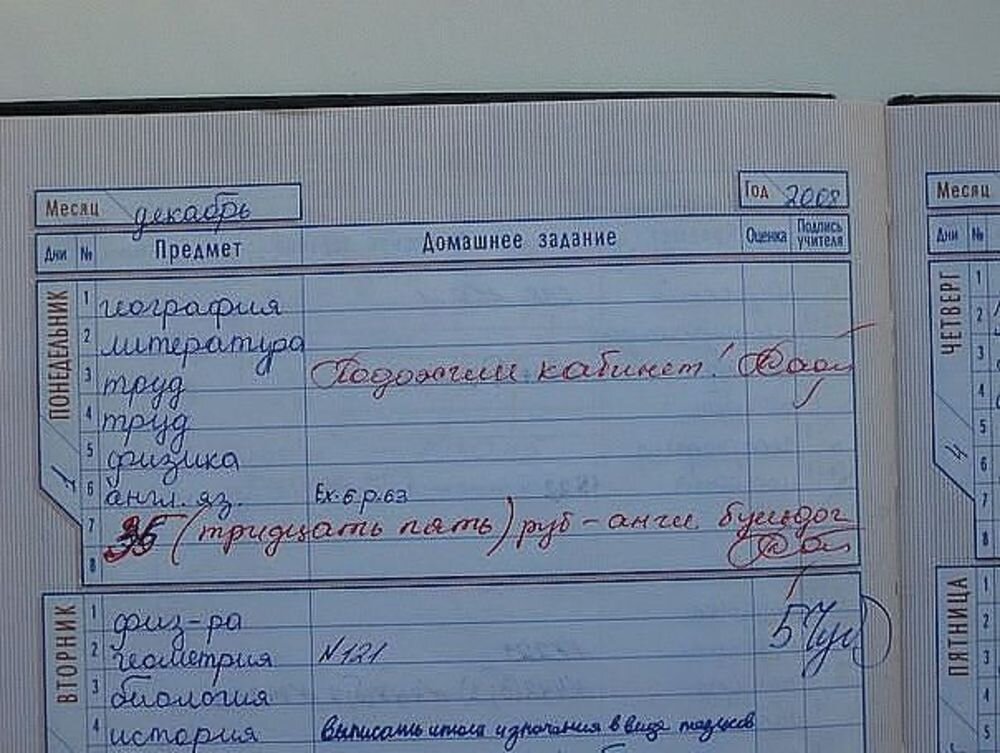 Месяц декабрь Год 2008
Дни № Предмет Домашнее задание Оценка Подпись учителя
ПОНЕДЕЛЬНИК 1
1 география
2 литература
3 труд Подожгли кабинет!
4 труд
5 физика
6 англ. яз. Ex. 6 p. 63
7 35 (тридцать пять) руб - англ бульдог
8
ВТОРНИК
1 физ-ра
2 геометрия №121 5
3 биология
4 история Выписать итоги в виде тезисов
Месяц
Дни №
ЧЕТВЕРГ 4
1
2
3
4
5
6
7
8
ПЯТНИЦА
1
2
3
4
5